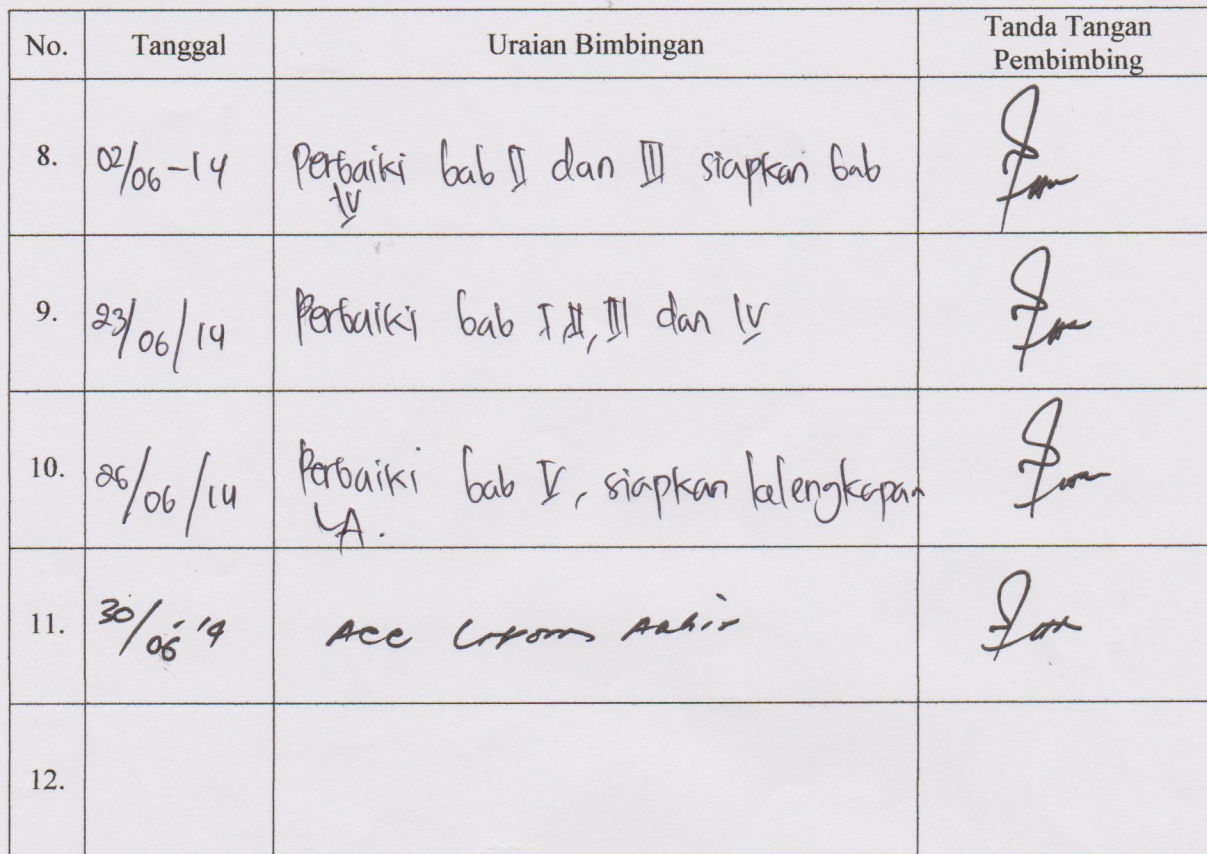 No. Tanggal Uraian Bimbingan Tanda Tangan
Pembimbing
8. 02/06-14 Perbaiki bab II dan III siapkan bab
IV
9. 23/06/14 Perbaiki bab I, II, III dan IV
10. 26/06/14 Perbaiki bab IV, siapkan kelengkapan
LA.
11. 30/06 '14 Acc Laporan Akhir
12.